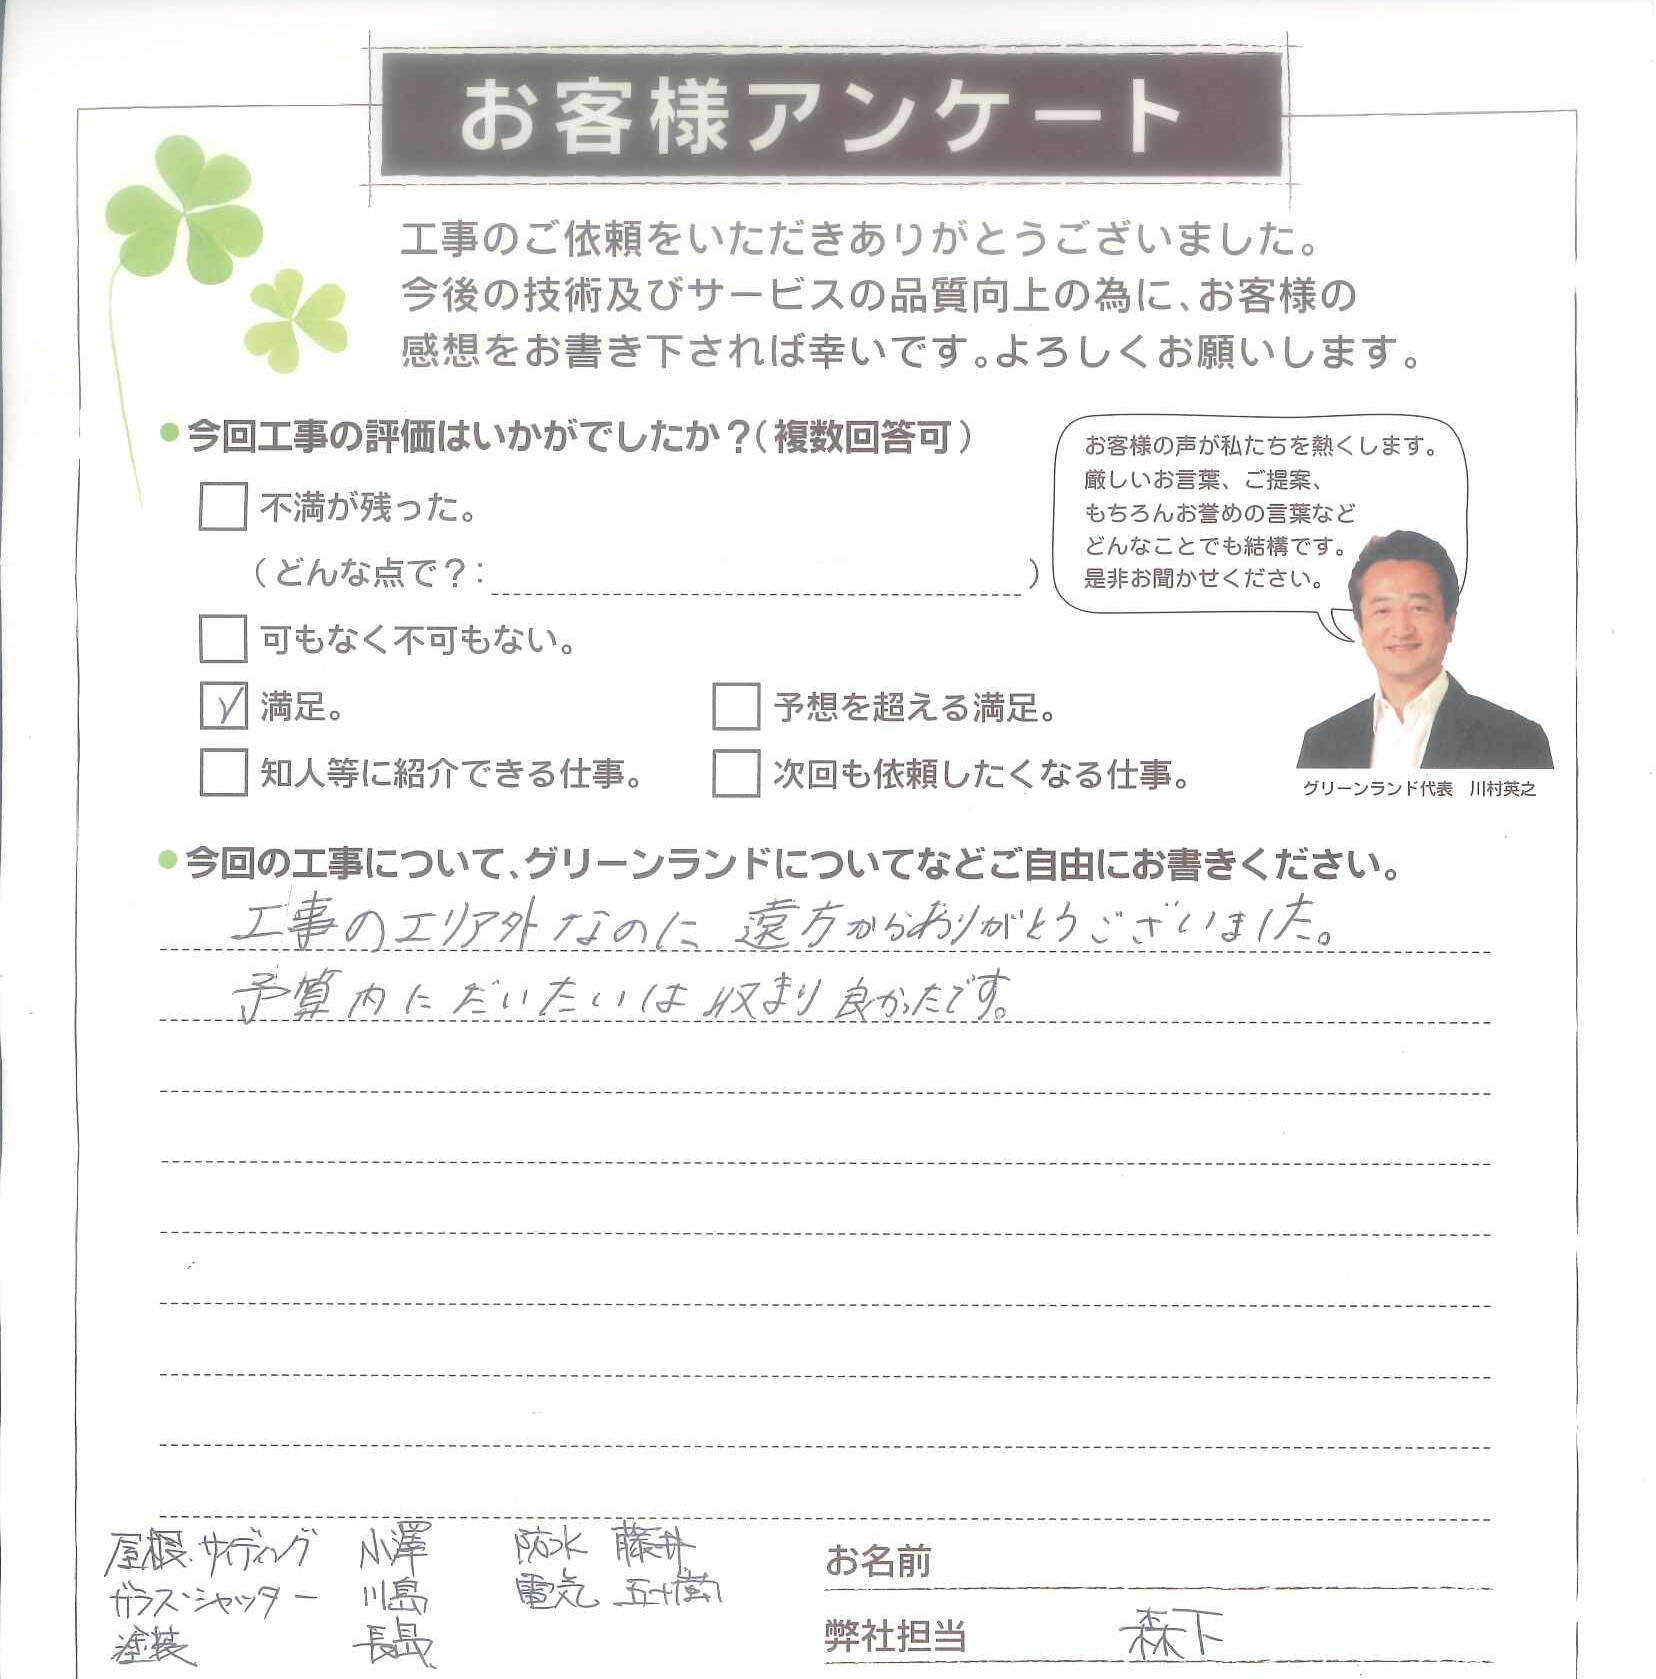 お客様アンケート
工事のご依頼をいただきありがとうございました。
今後の技術及びサービスの品質向上の為に、お客様の
感想をお書き下されば幸いです。よろしくお願いします。
今回工事の評価はいかがでしたか？（複数回答可）
不満が残った。
（どんな点で？： ）
可もなく不可もない。
満足。
予想を超える満足。
知人等に紹介できる仕事。
次回も依頼したくなる仕事。
お客様の声が私たちを熱くします。
厳しいお言葉、ご提案、
もちろんお誉めの言葉など
どんなことでも結構です。
是非お聞かせください。
グリーンランド代表 川村英之
今回の工事について、グリーンランドについてなどご自由にお書きください。
工事のエリア外なのに 遠方からありがとうございました。
予算内にだいたいは収まり良かったです。
屋根・サイディング 小澤 防水 藤井
ガラス・シャッター 川島 電気 五十嵐
塗装 長島
お名前
弊社担当 森下